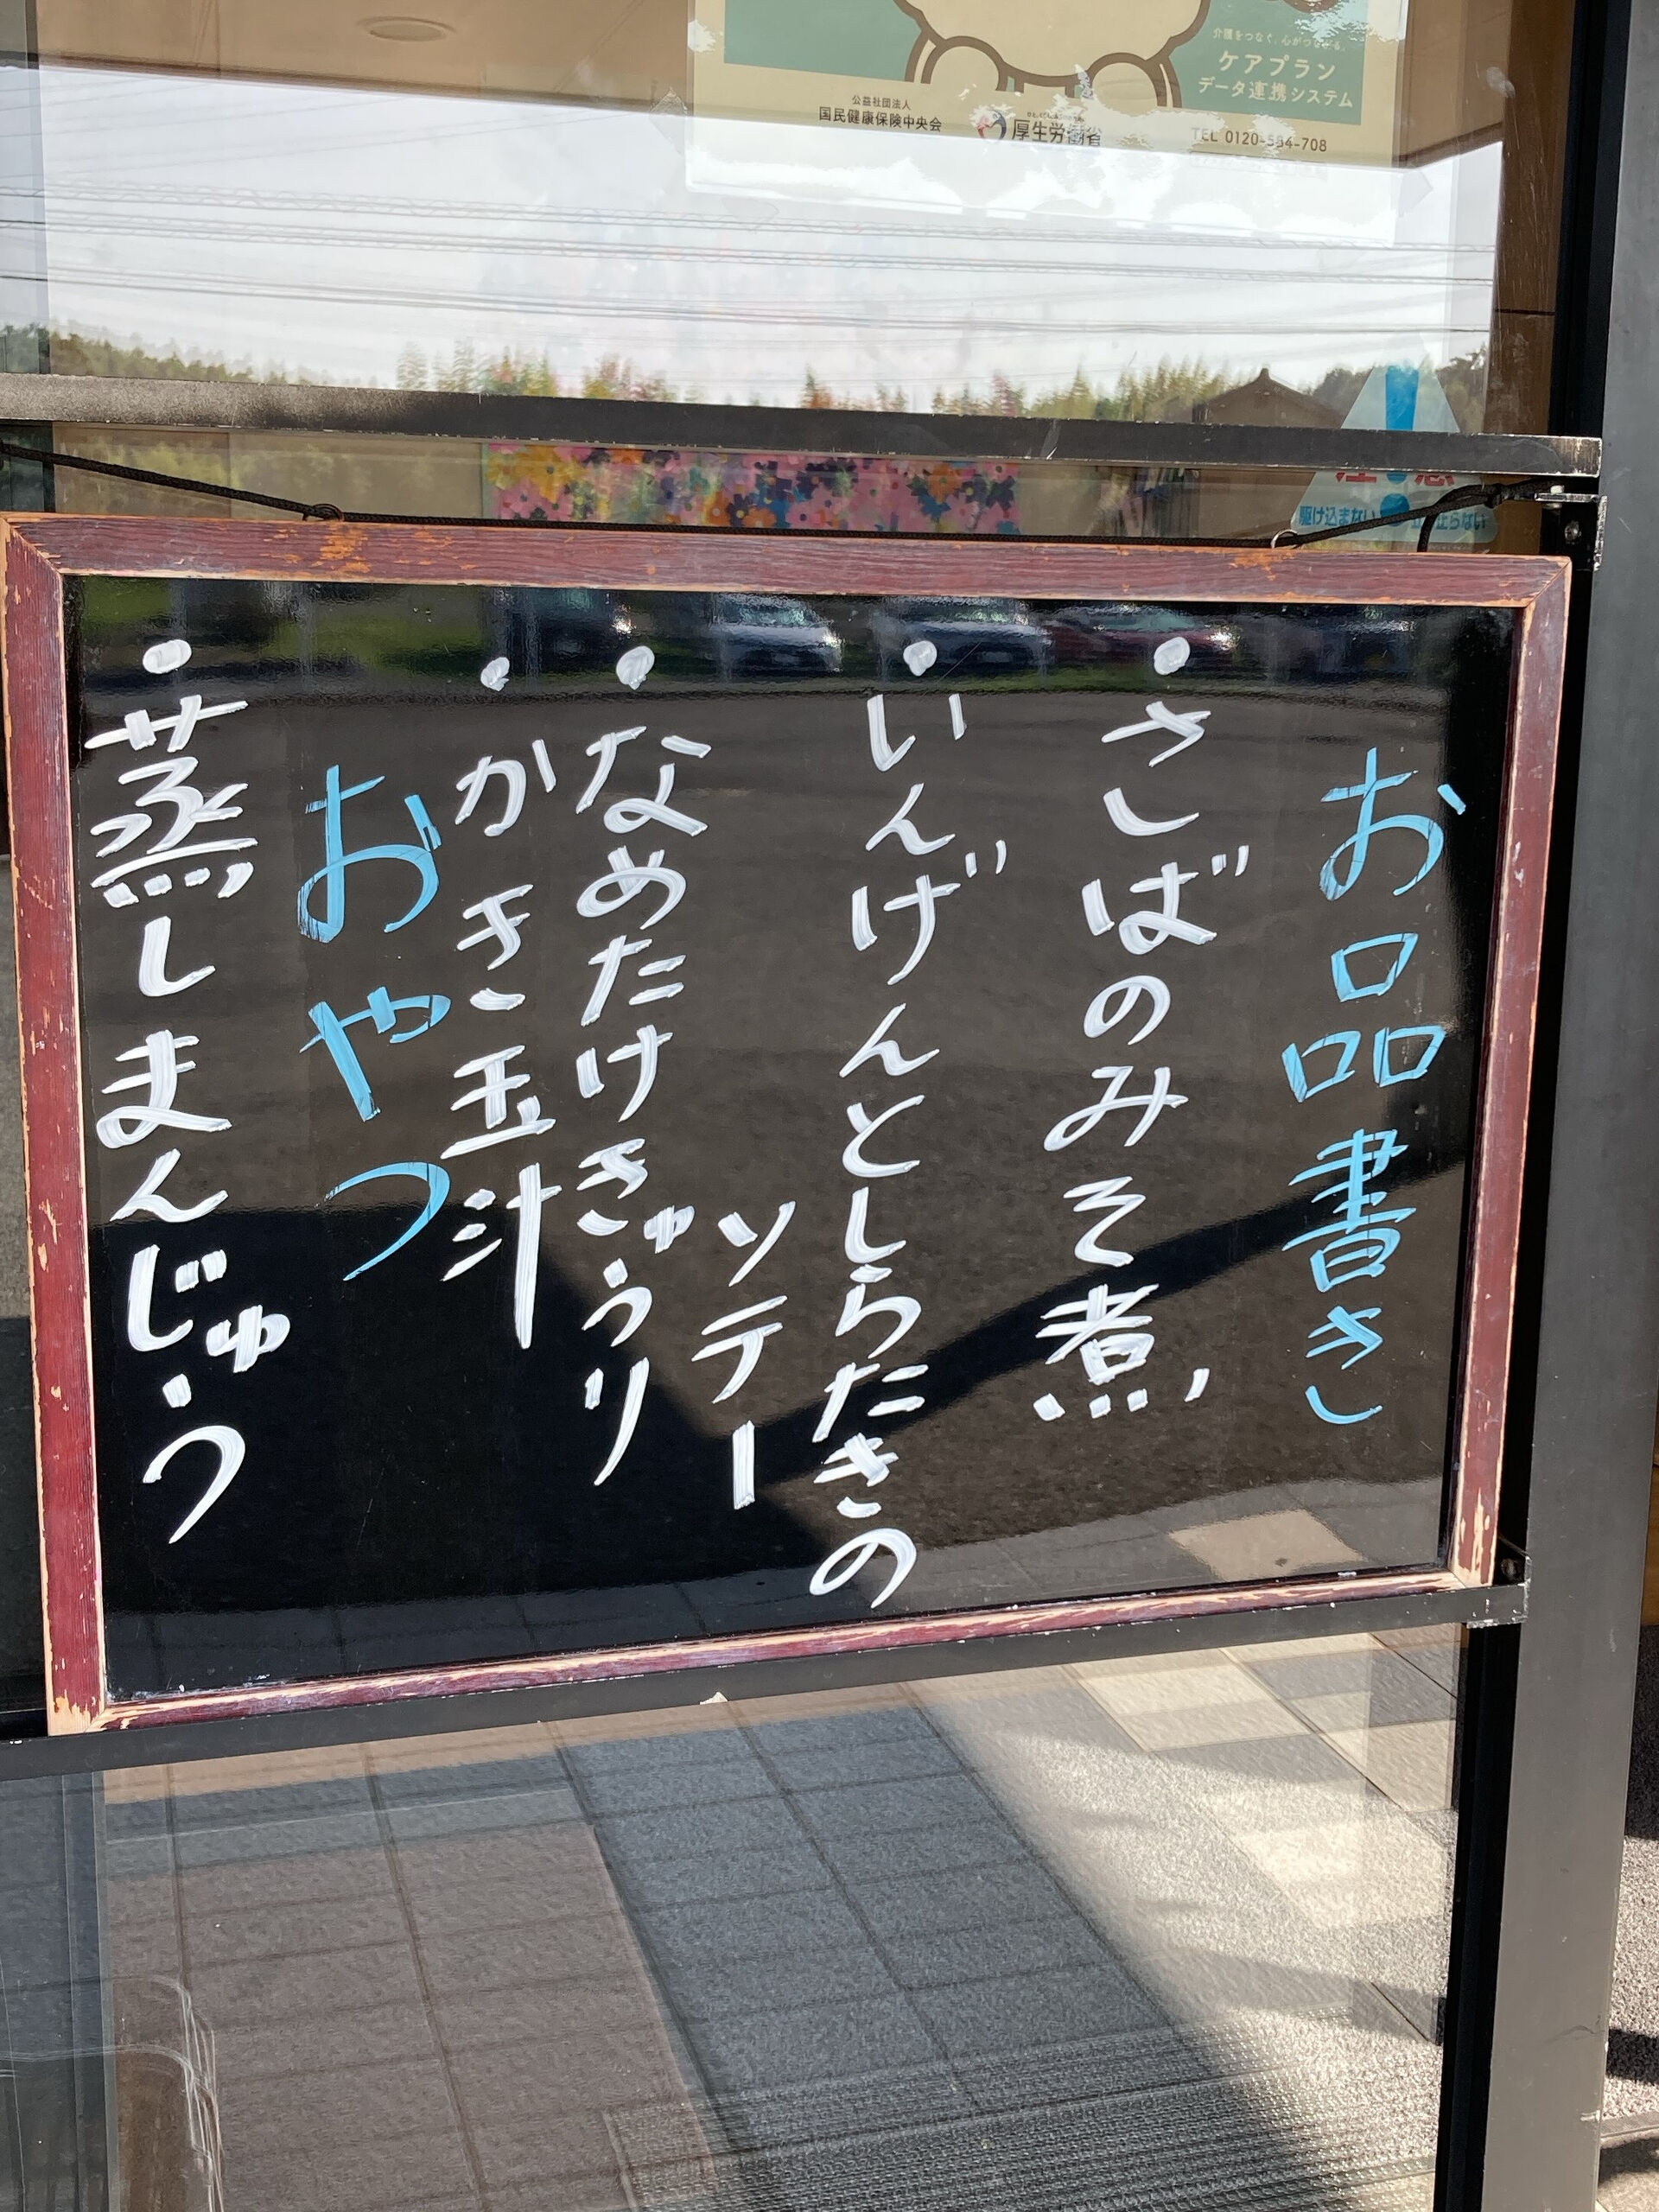 介護をつなぐ、心がつながる。
ケアプラン
データ連携システム
公益社団法人
国民健康保険中央会
厚生労働省
TEL 0120-584-708
注意
駆け込まない 立ち止らない
お品書き
・さばのみそ煮
・いんげんとしらたきの
ソテー
・なめたけきゅうり
・かき玉汁
おやつ
・蒸しまんじゅう